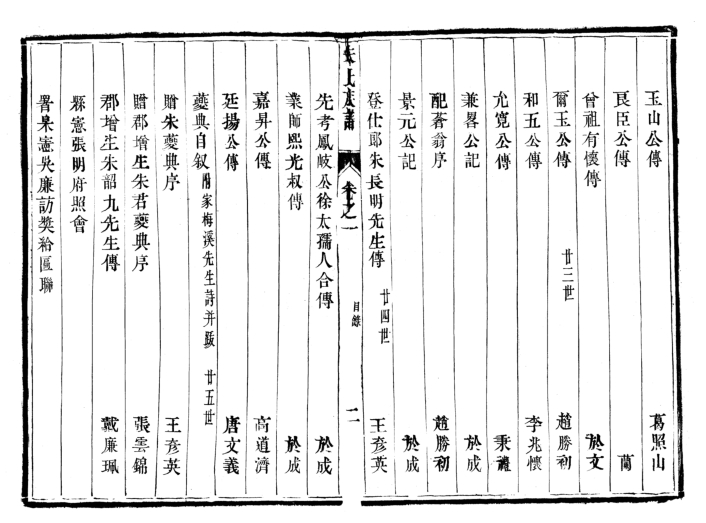 玉山公傳 葛照山
良臣公傳 蘭
曾祖有懷傳 於文
爾玉公傳 廿三世 趙勝初
和五公傳 李兆懷
允寬公傳 秉禮
兼畧公記 於成
配蒼翁序 趙勝初
景元公記 於成
登仕郎朱長明先生傳 廿四世 王彥英
朱氏族譜 卷之一 目錄 二
先考鳳岐公徐太孺人合傳 於成
業師熙光叔傳 於成
嘉昇公傳 高道濟
廷揚公傳 唐文義
夔典自叙 附家梅溪先生詩并跋 廿五世
贈朱夔典序 王彥英
贈郡增生朱君夔典序 張雲錦
郡增生朱韶九先生傳 戴廉珮
縣憲張明府照會
署臬憲吳廉訪獎給匾聯